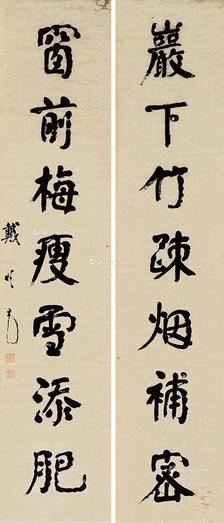 巖下竹疎烟補密
窗前梅瘦雪添肥
戴明說